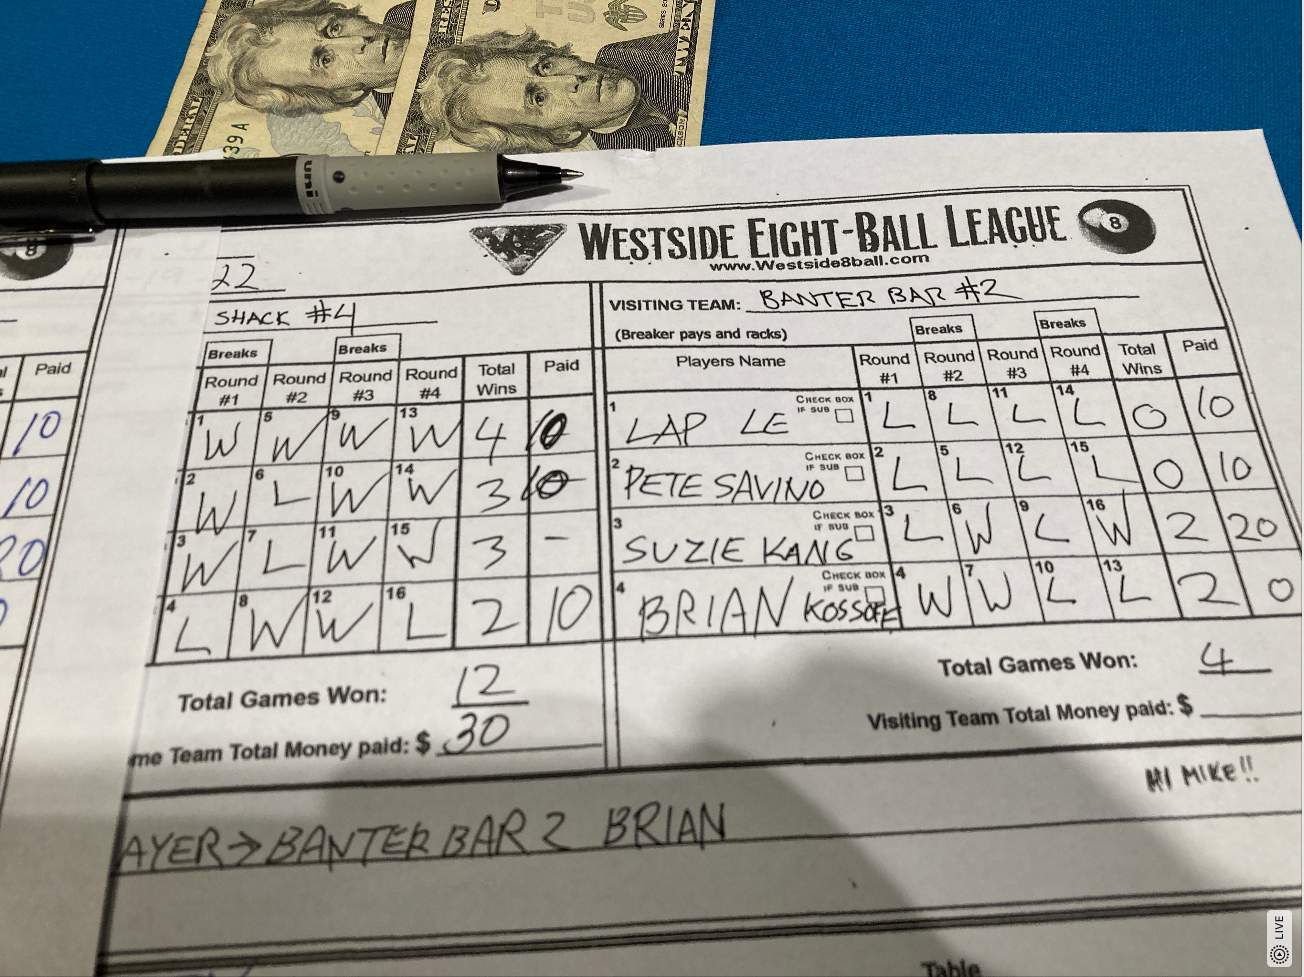 39 A
uni
WESTSIDE EIGHT-BALL LEAGUE
8
www.Westside8ball.com
22
SHACK #4
VISITING TEAM: BANTER BAR #2
(Breaker pays and racks)
Breaks Breaks
Breaks Breaks
Paid
Round #1 Round #2 Round #3 Round #4 Total Wins Paid
Players Name Round #1 Round #2 Round #3 Round #4 Total Wins Paid
10
1 W 5 W 9 W 13 W 4 10
1 LAP LE CHECK BOX IF SUB 1 L 8 L 11 L 14 L 0 10
10
2 W 6 L 10 W 14 W 3 10
2 PETE SAVINO CHECK BOX IF SUB 2 L 5 L 12 L 15 L 0 10
20
3 W 7 L 11 W 15 W 3 -
3 SUZIE KANG CHECK BOX IF SUB 3 L 6 W 9 L 16 W 2 20
4 L 8 W 12 W 16 L 2 10
4 BRIAN KOSSOFF CHECK BOX IF SUB 4 W 7 W 10 L 13 L 2 0
Total Games Won: 12
Total Games Won: 4
me Team Total Money paid: $ 30
Visiting Team Total Money paid: $
HI MIKE!!
AYER → BANTER BAR 2 BRIAN
Table
LIVE